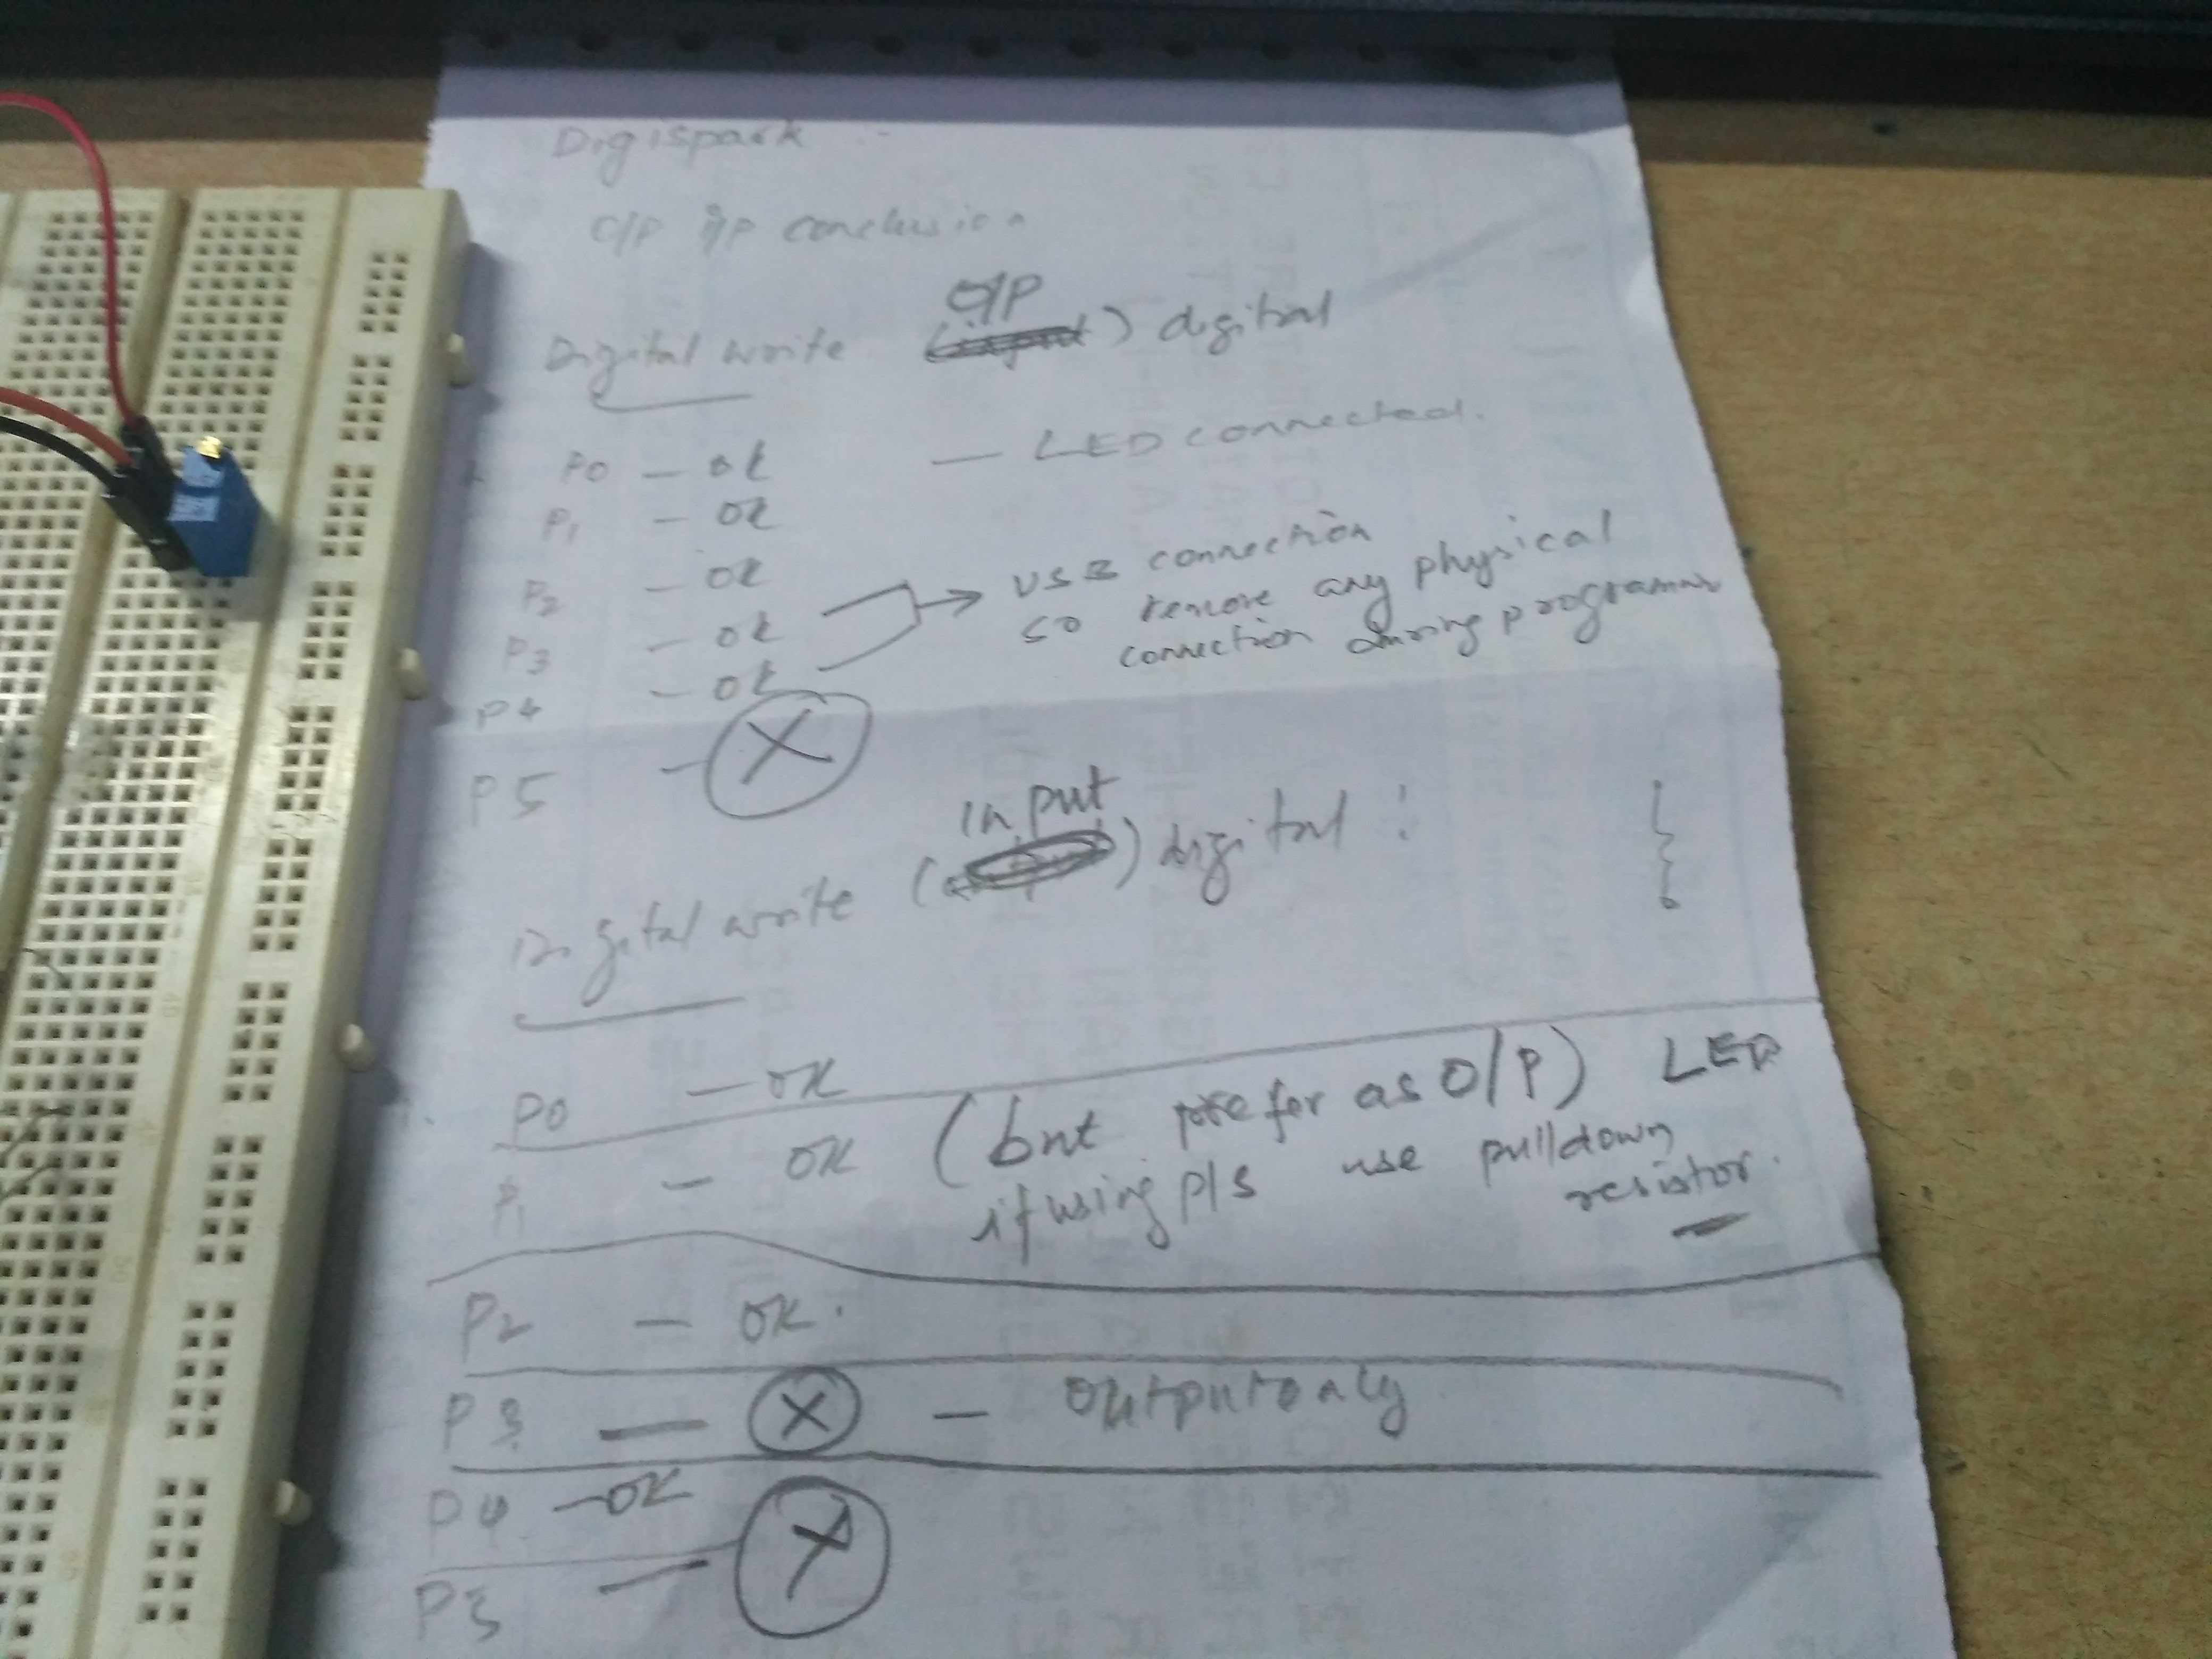 Digispark :-
O/P I/P conclusion
O/P
Digital write ( ) digital
P0 - ok - LED connected.
P1 - ok
P2 - ok
P3 - ok
P4 - ok
USB connection
so remove any physical
connection during programm
P5 - X
input
Digital write ( ) digital :
P0 - OK
P1 - OK (but prefer as O/P) LED
if using P/S use pulldown
resistor.
P2 - OK.
P3 - X - output only
P4 - OK
P5 - X